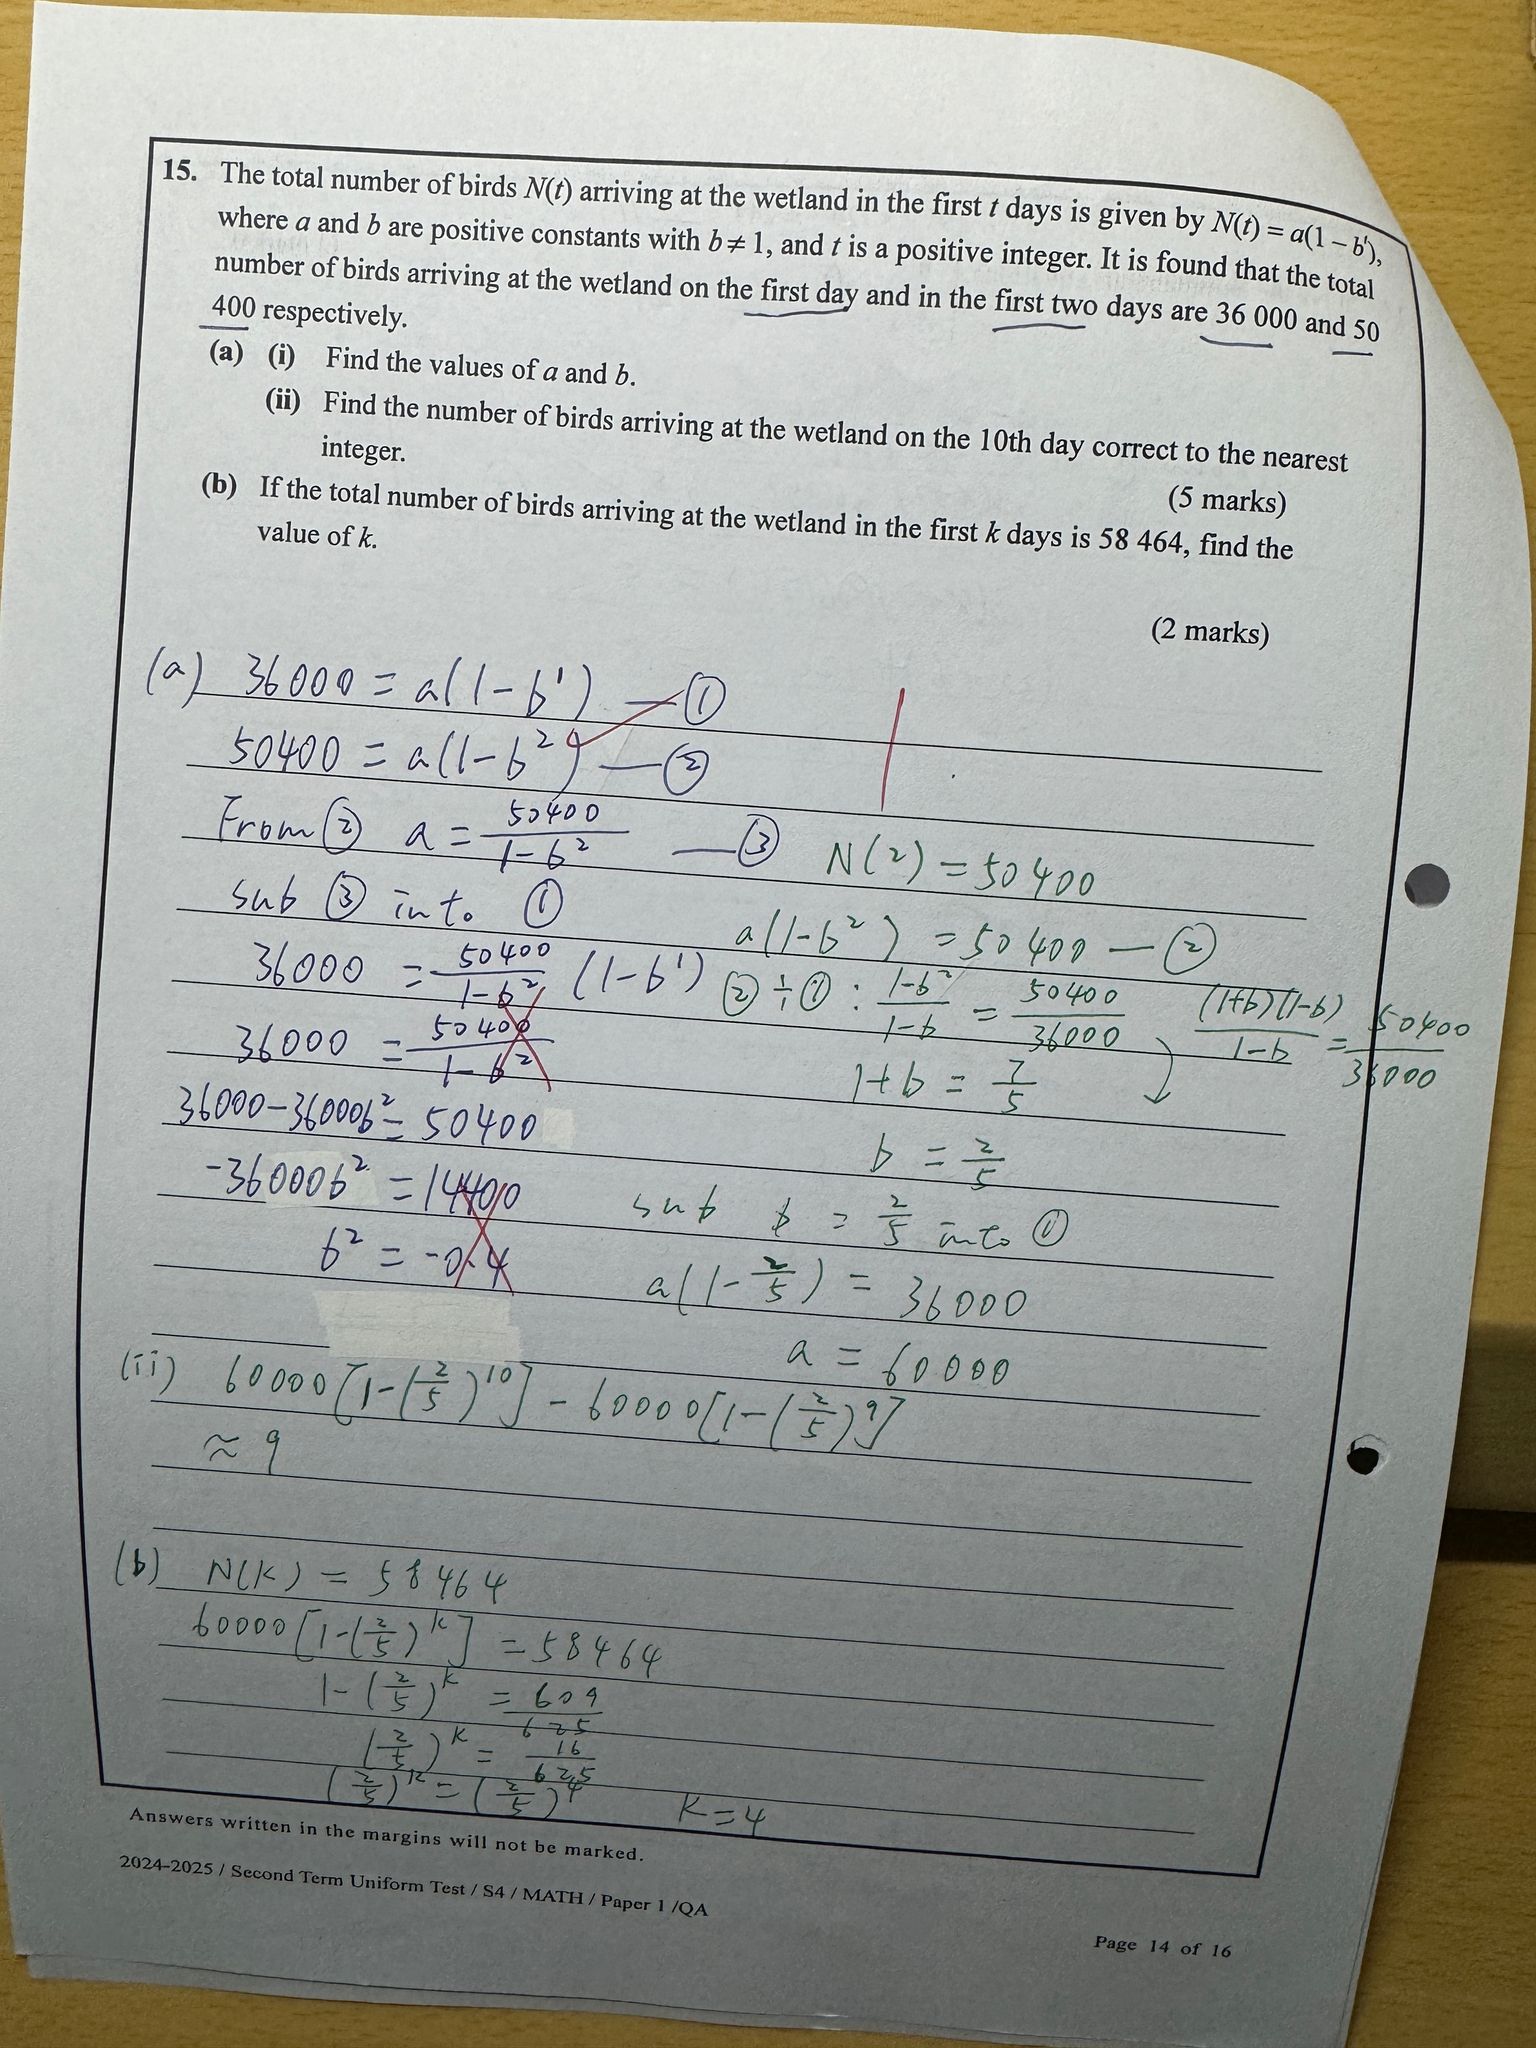 15. The total number of birds N(t) arriving at the wetland in the first t days is given by N(t) = a(1 – bᵗ),
where a and b are positive constants with b ≠ 1, and t is a positive integer. It is found that the total
number of birds arriving at the wetland on the first day and in the first two days are 36 000 and 50
400 respectively.
(a) (i) Find the values of a and b.
(ii) Find the number of birds arriving at the wetland on the 10th day correct to the nearest
integer.
(5 marks)
(b) If the total number of birds arriving at the wetland in the first k days is 58 464, find the
value of k.
(2 marks)
(a) 36000 = a(1-b¹) —①
50400 = a(1-b²) —②
From ② a = 50400/(1-b²) —③
sub ③ into ①
36000 = 50400/(1-b²) (1-b¹)
36000 = 50400/(1-b²)
36000-36000b² = 50400
-36000b² = 14400
b² = -0.4
N(2) = 50400
a(1-b²) = 50400 —②
②÷①: (1-b²)/(1-b) = 50400/36000
(1+b)(1-b)/(1-b) = 50400/36000
1+b = 7/5
b = 2/5
sub b = 2/5 into ①
a(1-2/5) = 36000
a = 60000
(ii) 60000[1-(2/5)¹⁰] - 60000[1-(2/5)⁹]
≈ 9
(b) N(k) = 58464
60000[1-(2/5)ᵏ] = 58464
1-(2/5)ᵏ = 609/625
(2/5)ᵏ = 16/625
(2/5)ᵏ = (2/5)⁴ k = 4
Answers written in the margins will not be marked.
2024-2025 / Second Term Uniform Test / S4 / MATH / Paper 1 /QA
Page 14 of 16